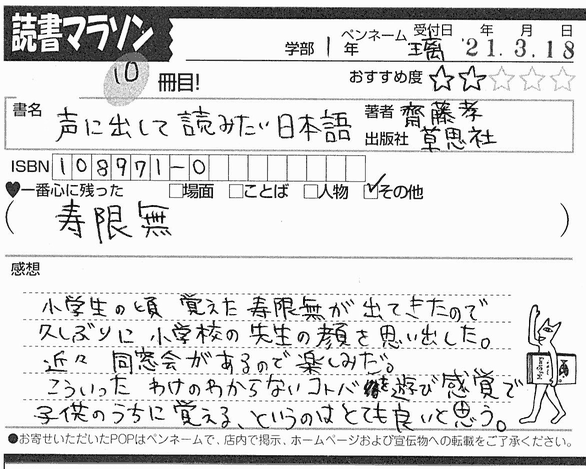 読書マラソン
10 冊目!
学部 1年 ペンネーム 璃 受付日 '21年.3月.18日
おすすめ度 ☆☆☆☆☆
書名 声に出して読みたい日本語
著者 齋藤孝
出版社 草思社
ISBN 108971-0
♥一番心に残った □場面 □ことば □人物 ☑その他
(寿限無)
感想
小学生の頃 覚えた 寿限無が 出てきたので
久しぶりに、小学校の 先生の 顔を 思い出した。
近々 同窓会があるので 楽しみだ。
こういった わけのわからない コトバ 遊び感覚で
子供のうちに 覚える、というのは とても 良いと思う。
●お寄せいただいたPOPはペンネームで、店内で掲示、ホームページおよび宣伝物への転載をご了承ください。